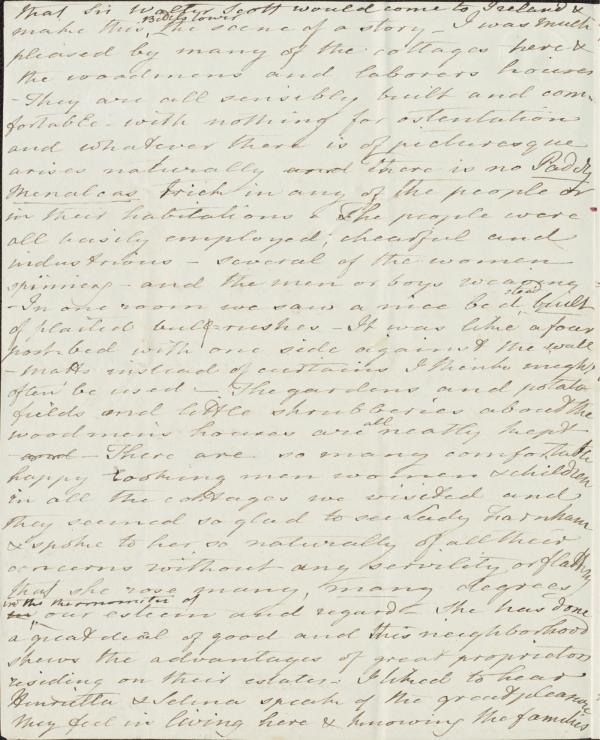 that Sir Walter Scott would come to Ireland &
make this, Bilbis tower the scene of a story – I was much
pleased by many of the cottages here &
the woodmens and laborers houses
– They are all sensibly built and com-
fortable – with nothing for ostentation
and whatever there is of picturesque
arises naturally and there is no Paddy
Menalcas trick in any of the people or
in their habitations. The people were
all busily employed, chearful and
industrious – several of the women
spinning – and the men or boys weaving
– In one room we saw a nice bed stead built
of plaited bullrushes – It was like a four
post-bed with one side against the wall
– matts instead of curtains I think might
often be used – The gardens and potatoe
fields and little shrubberies about the
woodmens houses are all neatly kept
– and – There are so many comfortable
happy looking men women & children
in all the cottages we visited and
they seemed so glad to see Lady Farnham
& spoke to her so naturally of all their
concerns without any servility or flattery
that she rose many, many degrees
in the thermometer of
in our esteem and regard – She has done
a great deal of good and this neighborhood
shews the advantages of great proprietors
residing on their estates – I liked to hear
Henrietta & Selina speak of the great pleasure
they feel in living here & knowing the families